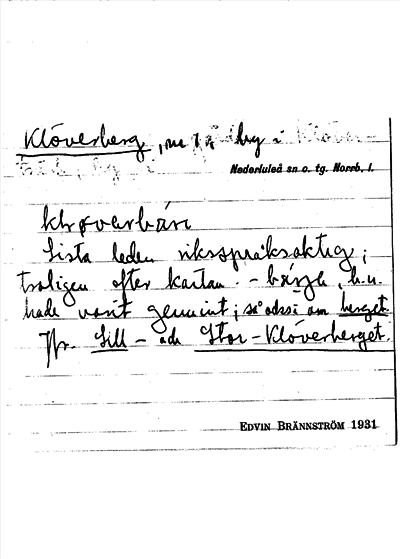 Klöverberg, nr 1, by i Klöver-
träsk, by
Nederluleå sn o. tg. Norrb. l.
kløverbäri
Sista leden riksspråksaktig;
troligen efter kartan. - bärjle, h.n.
hade varit genuint; så också om berget
Jfr. Lill- och Stor-Klöverberget.
EDVIN BRÄNNSTRÖM 1931